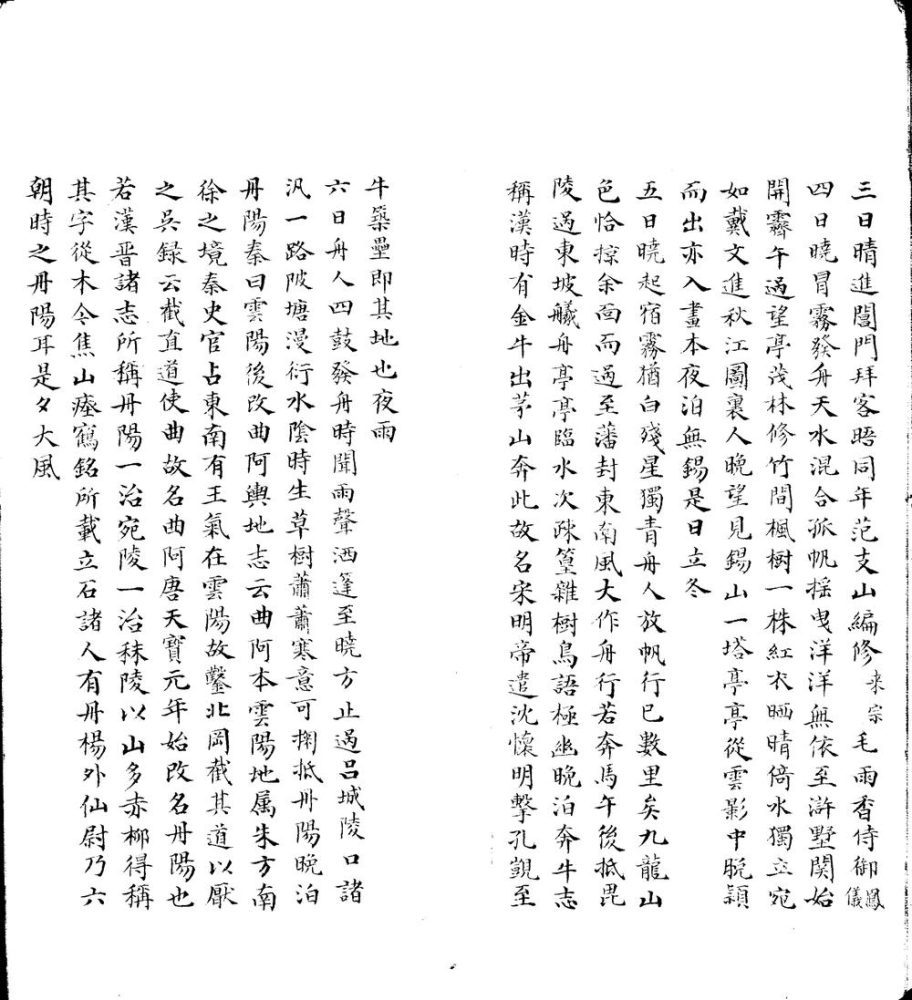 三日晴進閶門拜客晤同年范支山編修来宗毛雨香侍御鳳儀
四日曉冒霧發舟天水混合孤帆揺曳洋洋無依至滸墅関始
開霽午過望亭茂林修竹間楓樹一株紅衣晒晴倚水獨立宛
如戴文進秋江圖裏人晚望見錫山一塔亭亭從雲影中脫穎
而出亦入畫本夜泊無錫是日立冬
五日曉起宿霧猶白殘星獨青舟人放帆行已數里矣九龍山
色恰掠余面而過至藩封東南風大作舟行若奔馬午後抵毘
陵過東坡艤舟亭亭臨水次疎篁雜樹鳥語極幽晚泊奔牛志
稱漢時有金牛出茅山奔此故名宋明帝遣沈懷明擊孔覬至
牛築壘即其地也夜雨
六日舟人四鼓發舟時聞雨聲洒篷至曉方止過呂城陵口諸
汎一路陂塘漫衍水陰時生草樹蕭蕭寒意可掬抵丹陽晚泊
丹陽秦曰雲陽後改曲阿輿地志云曲阿本雲陽地属朱方南
徐之境秦史官占東南有王氣在雲陽故鑿北岡截其道以厭
之吳録云截直道使曲故名曲阿唐天寶元年始改名丹陽也
若漢晋諸志所稱丹陽一治宛陵一治秣陵以山多赤柳得稱
其字從木今焦山瘞鶴銘所載立石諸人有丹楊外仙尉乃六
朝時之丹陽耳是夕大風